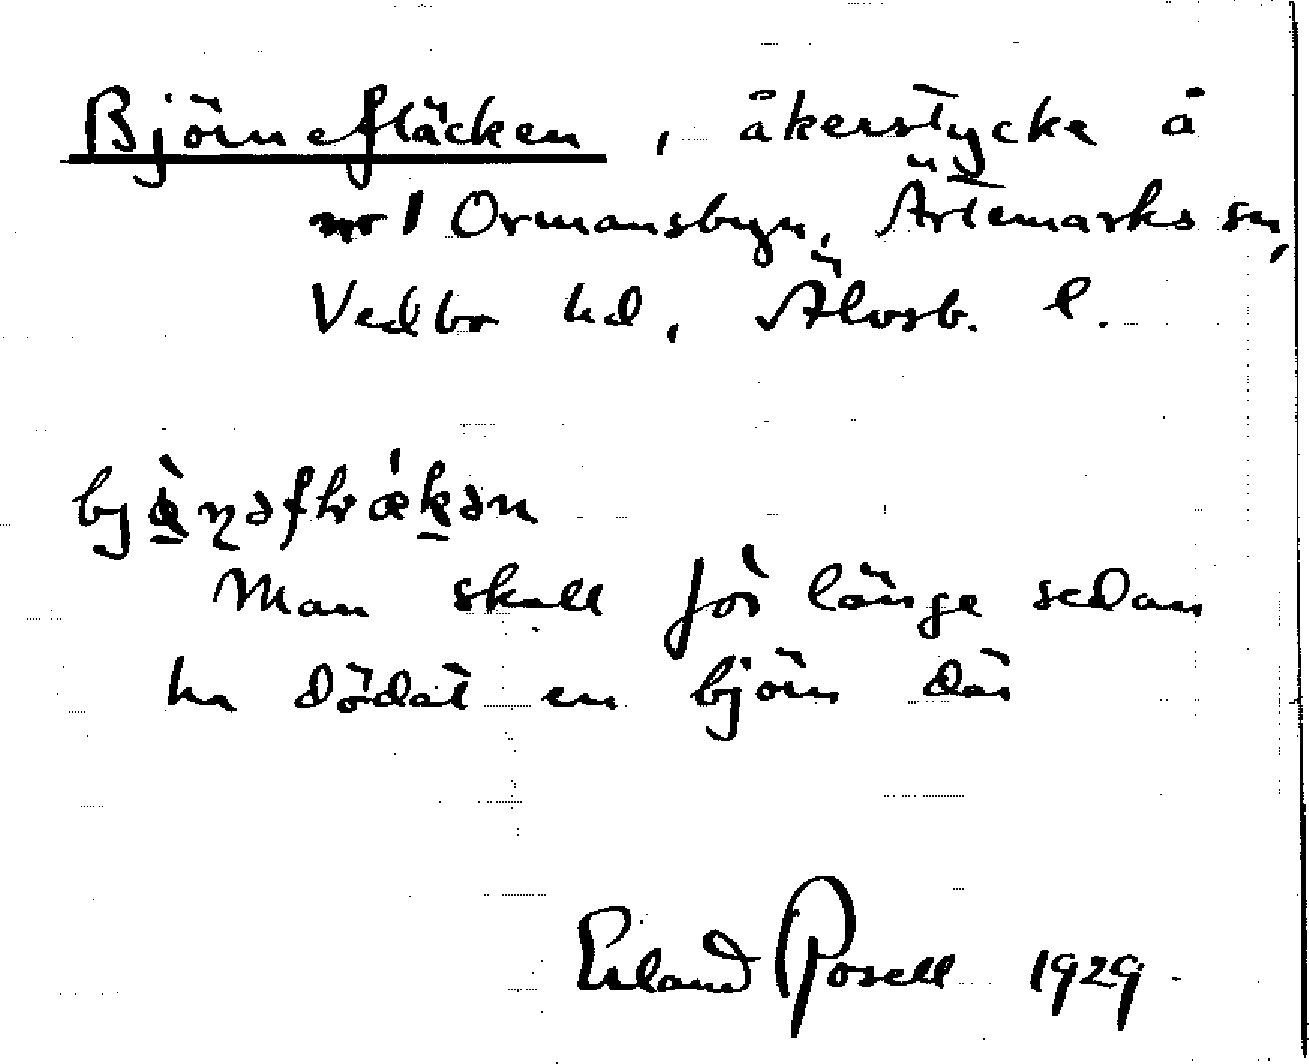 Björnefläcken, åkerstycke å
nr 1 Ormansbyn, Ärtemarks sn,
Vedbo hd, Älvsb. l.
Man skall för länge sedan
ha dödat en björn där
Erland Rosell 1929